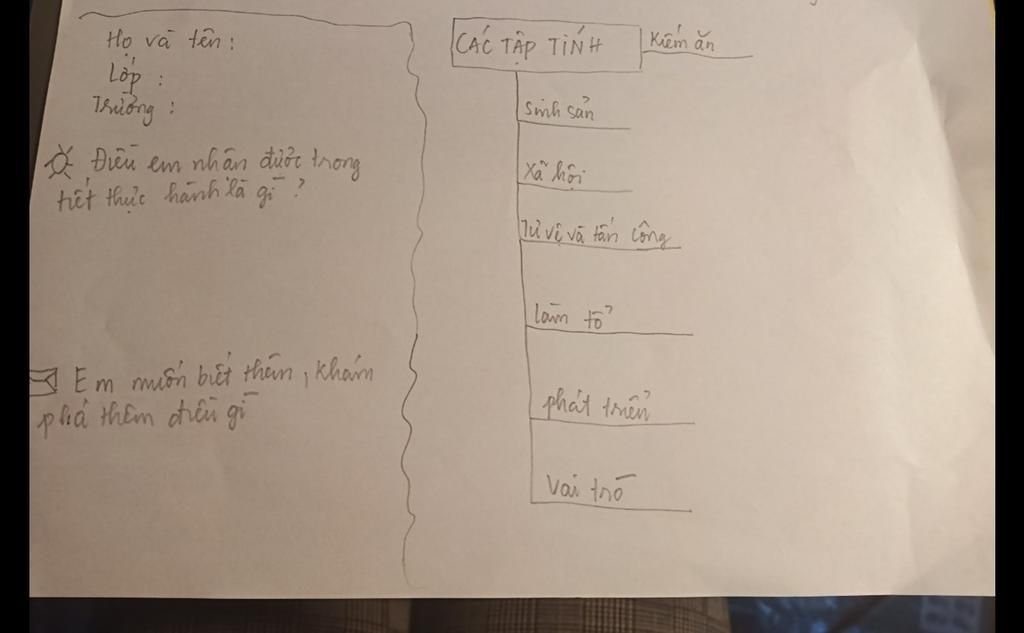 Họ và tên :
Lớp :
Trường :
Điều em nhân được trong
tiết thực hành là gì ?
Em muốn biết thên, khám
phá thêm điều gì
CÁC TẬP TÍNH
Kiếm ăn
Sinh sản
Xã hội
Tự vệ và tấn công
làm tổ
phát triển
Vai trò